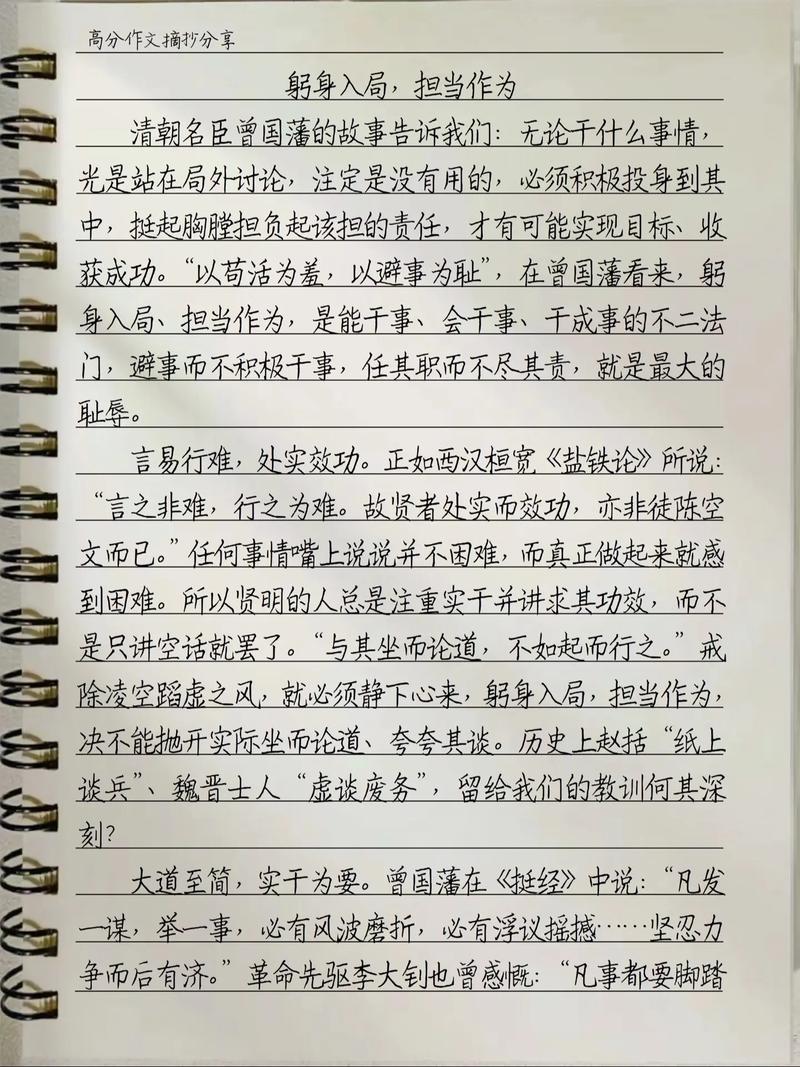 高分作文摘抄分享
躬身入局，担当作为
清朝名臣曾国藩的故事告诉我们：无论干什么事情，
光是站在局外讨论，注定是没有用的，必须积极投身到其
中，挺起胸膛担负起该担的责任，才有可能实现目标、收
获成功。“以苟活为羞，以避事为耻”，在曾国藩看来，躬
身入局、担当作为，是能干事、会干事、干成事的不二法
门，避事而不积极干事，任其职而不尽其责，就是最大的
耻辱。
言易行难，处实效功。正如西汉桓宽《盐铁论》所说：
“言之非难，行之为难。故贤者处实而效功，亦非徒陈空
文而已。”任何事情嘴上说说并不困难，而真正做起来就感
到困难。所以贤明的人总是注重实干并讲求其功效，而不
是只讲空话就罢了。“与其坐而论道，不如起而行之。”戒
除凌空蹈虚之风，就必须静下心来，躬身入局，担当作为，
决不能抛开实际坐而论道、夸夸其谈。历史上赵括“纸上
谈兵”、魏晋士人“虚谈废务”，留给我们的教训何其深
刻？
大道至简，实干为要。曾国藩在《挺经》中说：“凡发
一谋，举一事，必有风波磨折，必有浮议摇撼……坚忍力
争而后有济。”革命先驱李大钊也曾感慨：“凡事都要脚踏